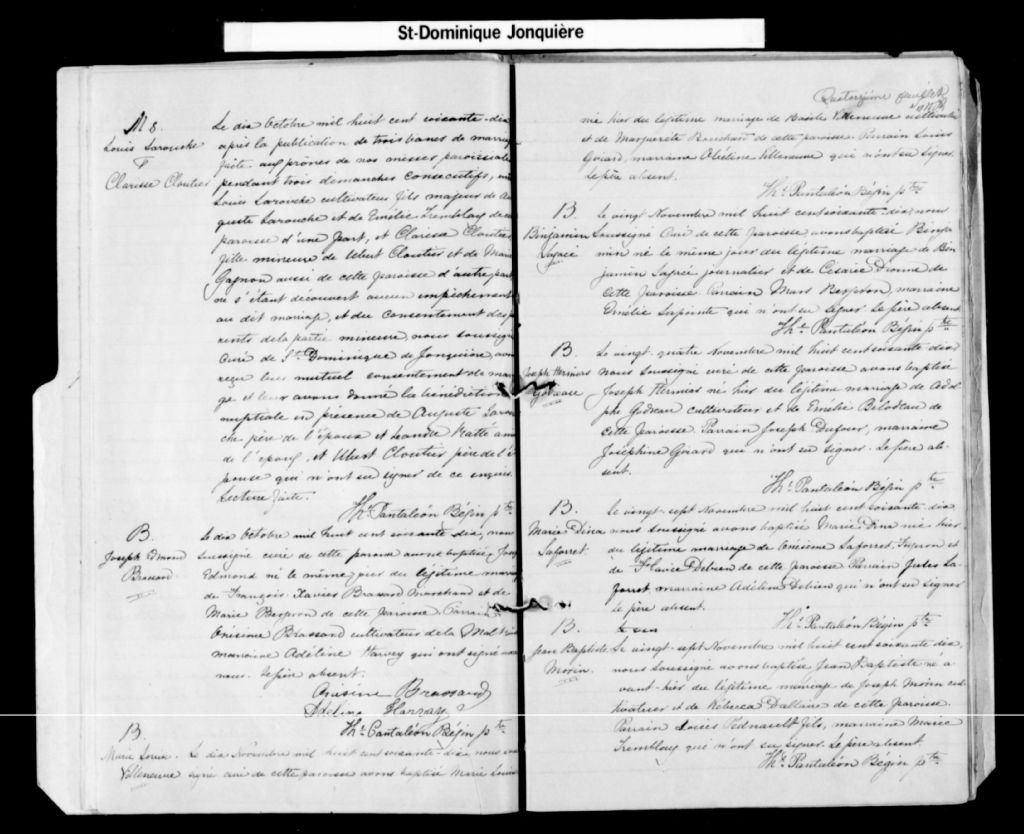 St-Dominique Jonquière
M 8.
Louis Larouche
&
Clarisse Cloutier
Le dix Octobre mil huit cent soixante-dix
après la publication de trois bancs de mariage
faite aux prônes de nos messes paroissiales
pendant trois demanches consecutifs,
Louis Larouche cultivateur fils majeur de Au
guste Larouche et de Emélie Tremblay de
paroisse d'une part, et Clarisse Cloutier
fille mineure de Ubert Cloutier et de Marie
Gagnon aussi de cette paroisse d'autre part
ne s'étant découvert aucun empêchement
au dit mariage, et du consentement des pa
rents de la partie mineure, nous soussigné
Curé de St Dominique de Jonquière, avons
reçu leur mutuel consentement de maria
ge et leur avons donné la bénédiction
nuptiale en présence de Auguste Larou
che père de l'époux et Leandre Ratté ami
de l'époux, et Ubert Cloutier père de l'é
pouse qui n'ont su signer de ce enquis
Lecture faite.
Ths Pantaléon Bégin ptre
B.
Joseph Edmond
Brassard
Le dix Octobre mil huit cent soixante dix, nous
soussigné curé de cette paroisse avons baptisé, Joseph
Edmond né le même jour du légitime mariage
de François-Xavier Brassard marchand et de
Marie Bergeron de cette paroisse. Parrain
Onésime Brassard cultivateur de la Malbaie
marraine Adéline Harvey qui ont signé avec
nous. Le père absent.
Onésime Brassard
Adeline Harvay
Ths Pantaléon Bégin ptre
B.
Marie Louise
Villeneuve
Le dix Novembre mil huit cent soixante-dix nous sous
signé curé de cette paroisse avons baptisé Marie Louise
Quatorzième feuillet
née hier du légitime mariage de Basile Villeneuve cultivateur
et de Marguerite Bouchard de cette paroisse. Parrain Louis
Girard, marraine Obéline Villeneuve qui n'ont su signer.
Le père absent.
Ths Pantaléon Bégin ptre
B.
Binjamin
Le vingt Novembre mil huit cent soixante dix, nous
Soussigné Curé de cette paroisse, avons baptisé Binja
min né le même jour du légitime mariage de Bin
jamin journalier et de Césarie Dionne de
cette paroisse. Parrain Mars Bergeron, marraine
Emélie Lapointe qui n'ont su signer. Le père absent
Ths Pantaléon Bégin ptre
B.
Joseph Hermias
Godreau
Le vingt-quatre Novembre mil huit cent soixante dix
nous soussigné curé de cette paroisse avons baptisé
Joseph Hermias né hier du légitime mariage de Adol
phe Godreau cultivateur et de Emélie Bilodeau de
cette paroisse. Parrain Joseph Dufour, marraine
Joséphine Girard qui n'ont su signer. Le père ab
sent.
Ths Pantaléon Bégin ptre
B.
Marie Dina
Laforret
Le vingt-sept Novembre mil huit cent soixante dix
nous soussigné avons baptisé Marie Dina née hier
du légitime mariage de Onésime Laforret, et
de Flavie Debien de cette paroisse Parrain Jules La
forret marraine Adéline Debien qui n'ont su signer
le père absent.
Ths Pantaléon Bégin ptre
B.
Jean Baptiste
Morin
Le vingt-sept Novembre mil huit cent soixante dix,
nous soussigné avons baptisé Jean Baptiste né a
vant-hier du légitime mariage de Joseph Morin cul
tivateur et de Rébecca Dallaire de cette paroisse.
Parrain Louis Pednault fils, marraine Marie
Tremblay qui n'ont su signer. Le père absent.
Ths Pantaléon Bégin ptre